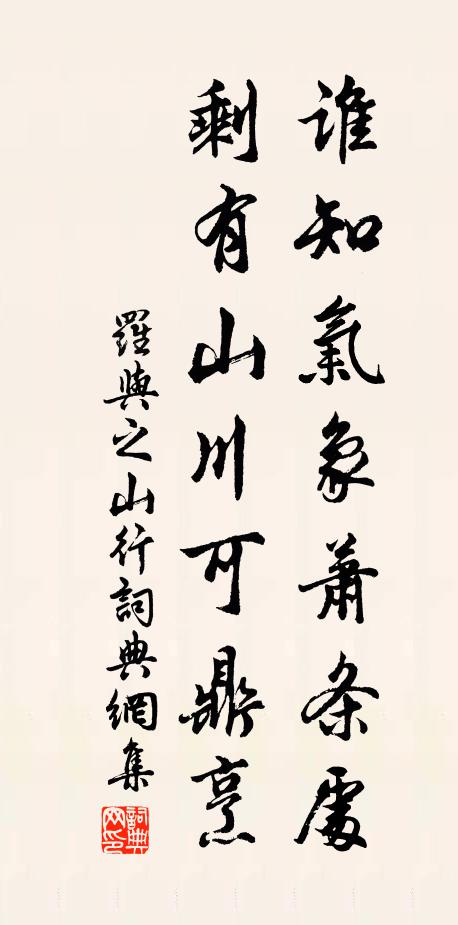 誰知氣象蕭条處
剩有山川可鼎烹
羅與之山行詞典網集
詞典网印